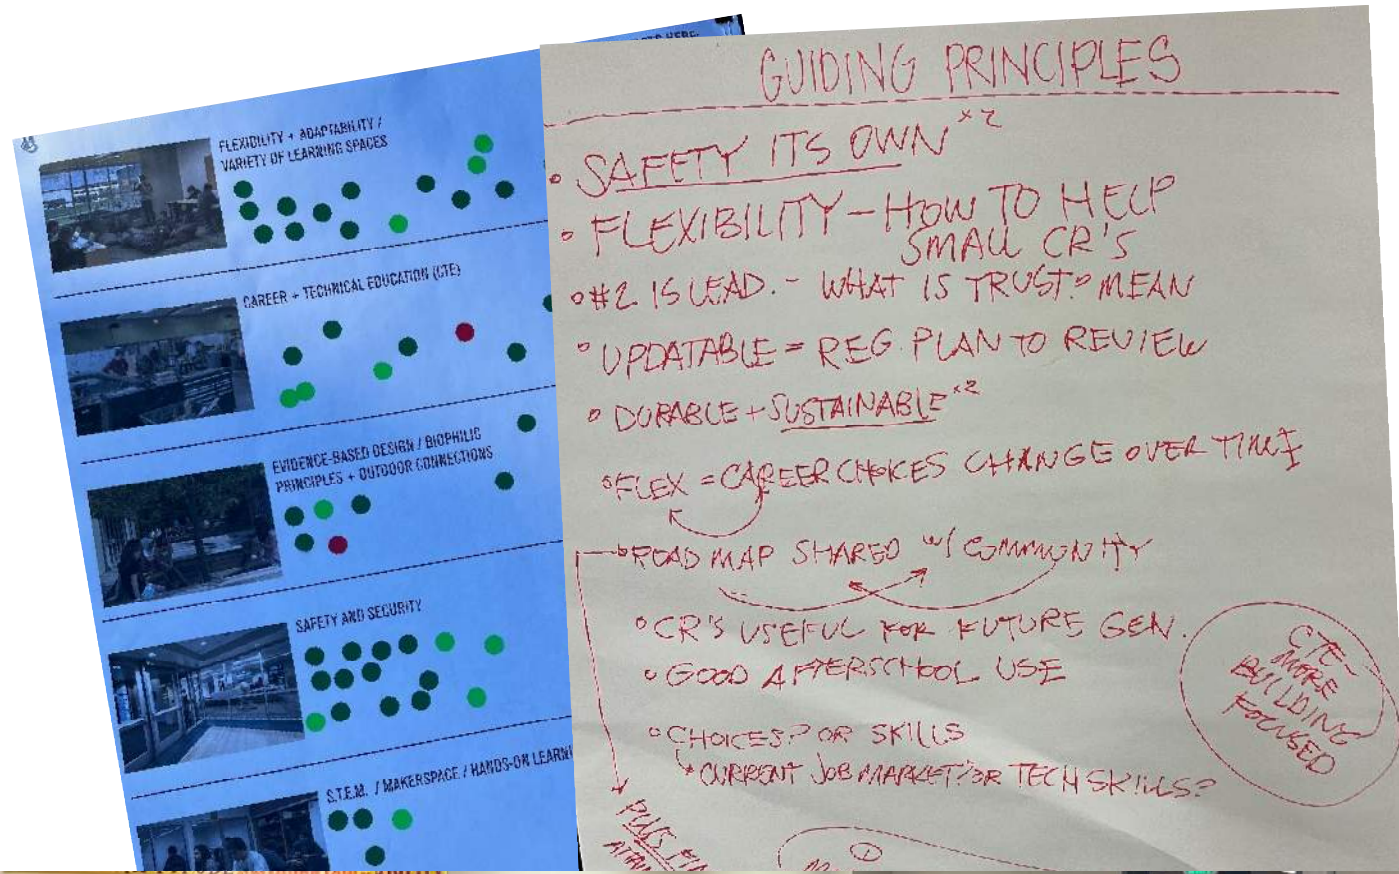 FLEXIBILITY + ADAPTABILITY /
VARIETY OF LEARNING SPACES
CAREER + TECHNICAL EDUCATION (CTE)
EVIDENCE-BASED DESIGN / BIOPHILIC
PRINCIPLES + OUTDOOR CONNECTIONS
SAFETY AND SECURITY
S.T.E.M. / MAKERSPACE / HANDS-ON
HERE.
GUIDING PRINCIPLES
SAFETY ITS OWN x2
FLEXIBILITY - HOW TO HELP
SMALL CR'S
#2 IS LEAD. - WHAT IS TRUST? MEAN
UPDATABLE = REG. PLAN TO REVIEW
DURABLE + SUSTAINABLE x2
FLEX = CAREER CHOICES CHANGE OVER TIME
ROAD MAP SHARED W/ COMMUNITY
CR'S USEFUL FOR FUTURE GEN.
GOOD AFTERSCHOOL USE
CHOICES? OR SKILLS
CURRENT JOB MARKET? OR TECH SKILLS?
CTE -
MORE
BUILDING
FOCUSED
1